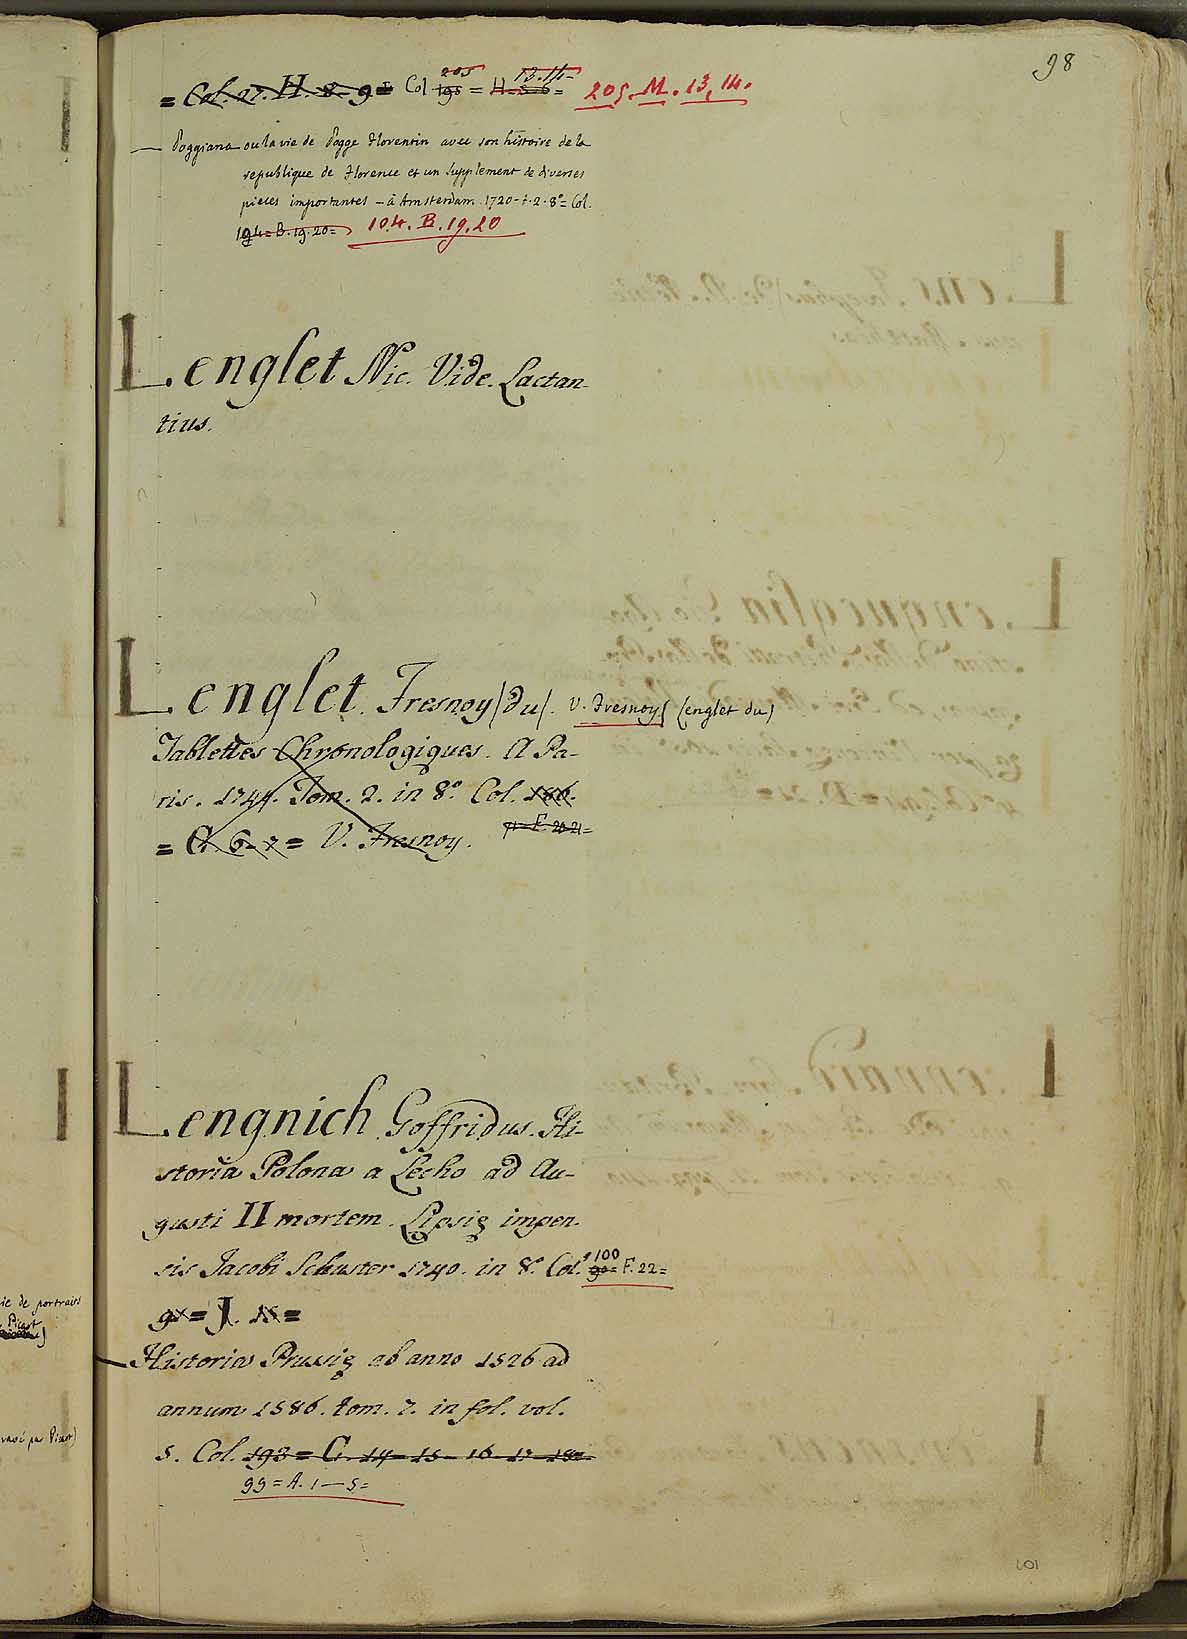 98
= Col. 27. H. 8. 9 = Col 195 205 = H = 5 6 = 13. 14 = 205. M. 13, 14.
Poggiana ou la vie de Pogge Florentin avec son histoire de la
republique de Florence et un supplement de diverses
pieces importantes – à Amsterdam. 1720 – t. 2. 8º = Col.
194 = B. 19. 20 = 104. B. 19. 20
Lenglet Nic. Vide. Lactan-
tius.
Lenglet Fresnoy (du). V. Fresnoy (Lenglet du)
Tablettes Chronologiques. A Pa-
ris. 1744. Tom. 2. in 8º. Col. 186.
= G. 6 - 7 = V. Fresnoy. 71 = F. 20 21 =
Lengnich Goffridus. Hi-
storia Polona a Lecho ad Au-
gusti II mortem. Lipsię impen-
sis Jacobi Schuster 1740. in 8º. Col. 90 100 = F. 22 =
= J. 15 =
Historia Prussię ab anno 1526 ad
annum 1586. tom. 7. in fol. vol.
5. Col. 193 = C. 14 - 15 - 16 - 17 - 18 =
99 = A. 1 — 5 =
ie de portraits
Picart
vavé par Picart)
101